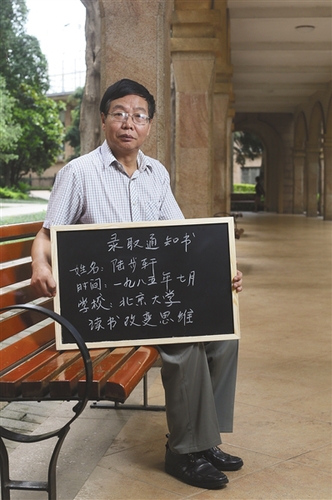 录取通知书
姓名：陆步轩
时间：一九八五年七月
学校：北京大学
读书改变思维